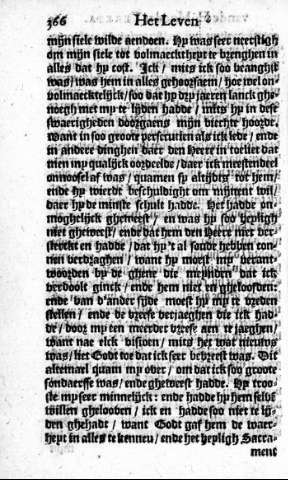 366 Het Leven
mijn siele wilde aendoen. Hy was seer neerstigh
om mijn siele tot volmaecktheyt te brenghen in
alles dat hy cost. Ick / mits ick soo beanghst
was / was hem in alles gehoorsaem / hoe wel on-
volmaecktelijck / soo dat hy dry jaeren lanck ghe-
noegh met my te lyden hadde / mits hy in dese
swaerigheden doorgaens mijn biechte hoorde.
Want in soo groote persecutien als ick lede / ende
in andere dinghen daer den Heere in toeliet dat
men my qualijck oordeelde / daer ick meestendeel
onnoosel af was / quamen sy altijdts tot hem /
ende hy wierdt beschuldight om mijnent wil /
daer hy de minste schult hadde. Het hadde on-
moghelijck gheweest / en was hy soo heyligh
niet gheweest / ende dat hem den Heere niet ver-
sterckt en hadde / dat hy 't al soude hebben con-
nen verdraghen / want hy moest my verant-
woorden by de ghene die meynden dat ick
verdoolt ginck / ende hem niet en gheloofden:
ende van d'ander sijde moest hy my te vreden
stellen / ende de vreese verjaeghen die ick had-
de / door my een meerder vreese aen te jaeghen /
want nae elck visioen / mits het wat nieuws
was / liet Godt toe dat ick seer bevreest was. Dit
altemael quam my over / om dat ick soo groote
sondaersse was / ende gheweest hadde. Hy troo-
ste my seer minnelijck: ende hadde hy hem selve
willen gheloofven / ick en hadde soo niet te ly-
den ghehadt / want Godt gaf hem de waer-
heyt in alles te kennen / ende het heyligh Sacra-
ment